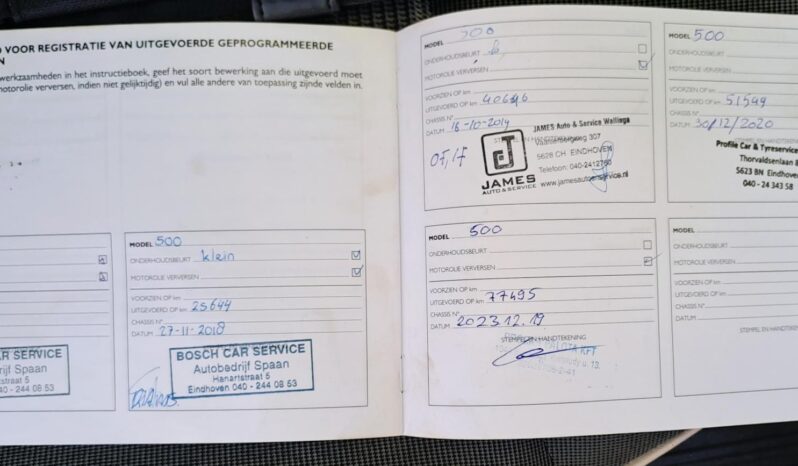 VOOR REGISTRATIE VAN UITGEVOERDE GEPROGRAMMEERDE
werkzaamheden in het instructieboek, geef het soort bewerking aan die uitgevoerd moet
motorolie verversen, indien niet gelijktijdig) en vul alle andere van toepassing zijnde velden in.
CAR SERVICE
Spaan
040 - 244 08 53
MODEL 500
ONDERHOUDSBEURT klein
MOTOROLIE VERVERSEN
VOORZIEN OP km
UITGEVOERD OP km 25644
CHASSIS N°
DATUM 27-11-2018
BOSCH CAR SERVICE
Autobedrijf Spaan
Hanartstraat 5
Eindhoven 040 - 244 08 53
MODEL 500
ONDERHOUDSBEURT
MOTOROLIE VERVERSEN
VOORZIEN OP km
UITGEVOERD OP km 40646
CHASSIS N°
DATUM 18-10-2019
STEMPEL EN HANDTEKENING
JAMES Auto & Service Wallinga
307
5628 CH EINDHOVEN
Telefoon: 040-2412760
www.jamesautoenservice.nl
JAMES
AUTO & SERVICE
MODEL 500
ONDERHOUDSBEURT
MOTOROLIE VERVERSEN
VOORZIEN OP km
UITGEVOERD OP km 51549
CHASSIS N°
DATUM 30/12/2020
Profile Car & Tyreservice
Thorvaldsenlaan
5623 BN Eindhoven
040 - 24 343 58
MODEL 500
ONDERHOUDSBEURT
MOTOROLIE VERVERSEN
VOORZIEN OP km
UITGEVOERD OP km 77495
CHASSIS N°
DATUM 2023.12.19
STEMPEL EN HANDTEKENING
KFT
MODEL
ONDERHOUDSBEURT
MOTOROLIE VERVERSEN
VOORZIEN OP km
UITGEVOERD OP km
CHASSIS N°
DATUM
STEMPEL EN